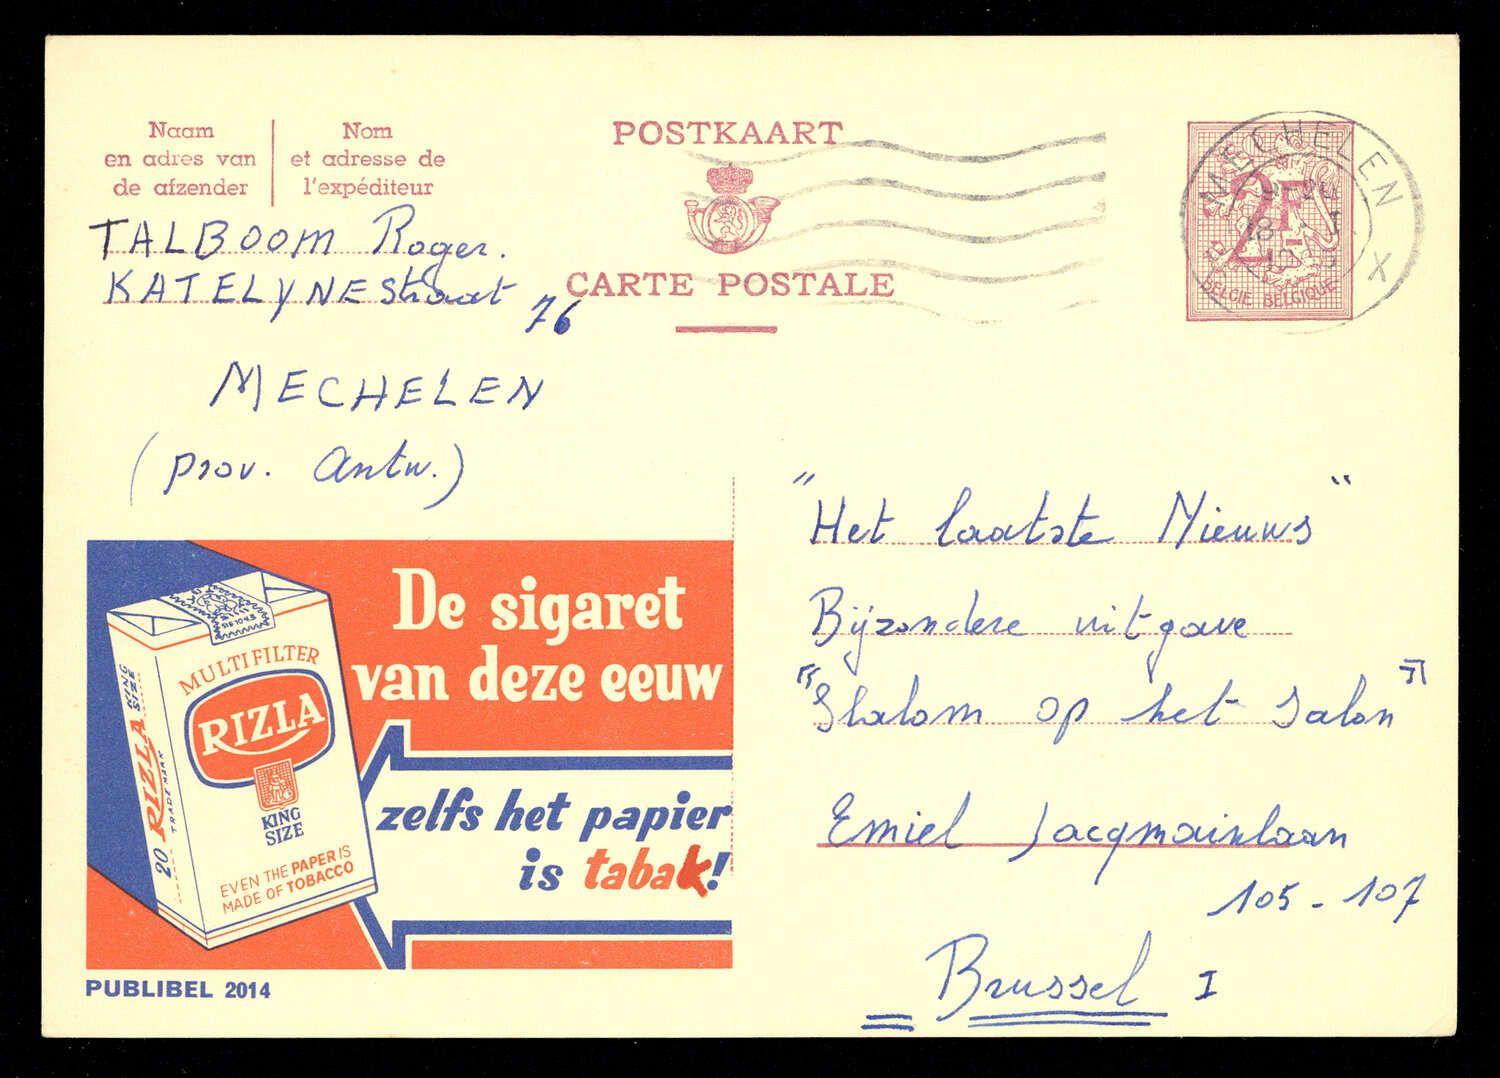 Naam
en adres van
de afzender
Nom
et adresse de
l'expéditeur
POSTKAART
CARTE POSTALE
MECHELEN X
2F
BELGIE BELGIQUE
TALBOOM Roger.
KATELYNEStraat 76
MECHELEN
(prov. Antw.)
De sigaret
van deze eeuw
zelfs het papier
is tabak!
MULTIFILTER
RIZLA
KING
SIZE
EVEN THE PAPER IS
MADE OF TOBACCO
KING
SIZE
RIZLA
TRADE MARK
20
PUBLIBEL 2014
"Het laatste Nieuws"
Bijzondere uitgave
"Slalom op het Salon"
Emiel Jacqmainlaan
105 - 107
Brussel I